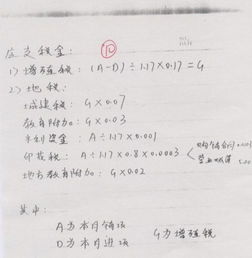 ⑩
应交税金:
1) 增值税: (A-D)÷1.17×0.17=G
2) 地税:
城建税: G×0.07
教育附加: G×0.03
水利资金: A÷1.17×0.001
印花税: A÷1.17×0.8×0.0003
地方教育附加: G×0.02
其中:
A为本月销项
D为本月进项
G为增值税